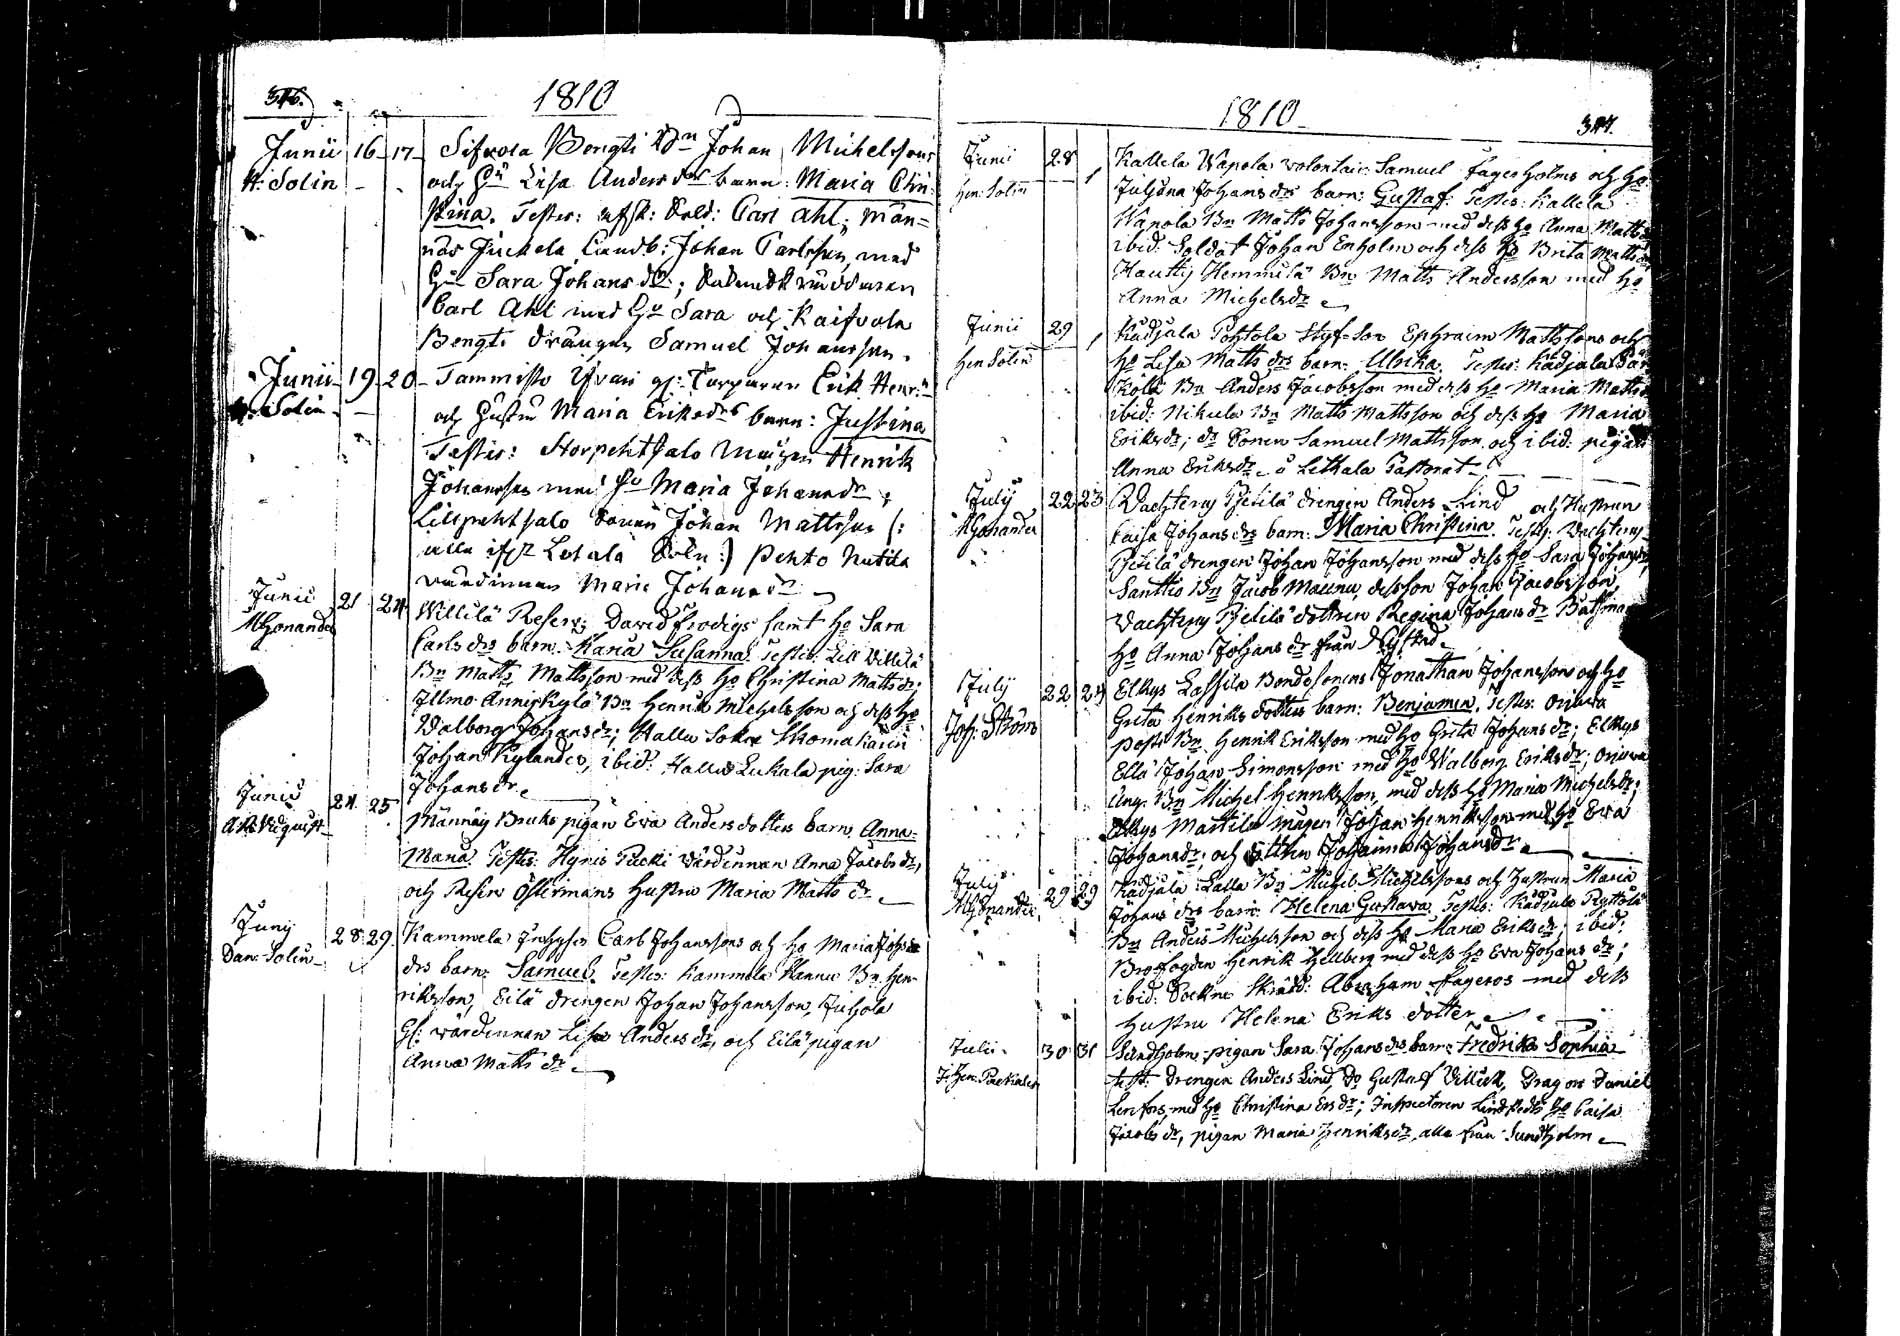 346.
1810
Junii 16 17 Sifvola Bengti Bn Johan Michelssons
H. Solin och Hu Lisa Anders drs barn: Maria Chri-
stina. Testes: afsk: Sold: Carl Ahl; Män-
näs Juckela Landb: Johan Carlsson, med
Hu Sara Johans dr;
Carl Ahl med Hu Sara och Kaifvola
Bengti drängen Samuel Johansson.
Junii 19 20 Tammisto Yrari gl: Torparen Erik Henr:
H. Solin och Hustru Maria Eriksdrs barn: Justina
Testes: Storpehtsalo Mågen Henrik
Johansson med Hu Maria Johansdr;
Lillpehtsalo Sonen Johan Mattsson (:
alla ifr Letala Sokn:) Pehto Mutila
värdinnan Maria Johansdr
Junii 21 24 Willilä Reserv: David Frodigs samt Ho Sara
M Gonander Carls drs barn: Karia Susanna. Testes: Lill Villilä
Bn Matts Mattsson med dess Ho Christina Matts dr;
Illmo Anniskylä Bn Henrik Michelsson och dess Ho
Walborg Johansdr; Hallu Sokne Skomakaren
Johan Rylander, ibid: Hallu Lukala pig: Sara
Johansdr
Junii 24 25 Männäs Bruks pigan Eva Andersdotters barn Anna
Maria. Testes: Hynis Packi värdinnan Anna Jacobs dr,
och Reserv Östermans Hustru Maria Matts dr
Junij 28 29 Kammela Inhyses Carl Johanssons och Ho Maria Johans
Dan: Solin drs barn: Samuel. Testes: Kammela Hannu Bn Hen-
riksson, Eilä drengen Johan Johansson, Juhola
Gl: värdinnan Lisa Anders dr, och Eilä pigan
Anna Matts dr
1810
347.
Junii 28 Kallela Wapola volontair Samuel Fagerholms och Ho
Hen: Solin Juliana Johans drs barn: Gustaf. Testes: Kallela
Wapola Bn Matts Johansson med dess Ho Anna Matts dr
ibid: Soldat Johan Enholm och dess Ho Brita Matts dr
Hautis Hemmilä Bn Matts Andersson med Ho
Anna Michelsdr
Junii 29 Kådjala Pohtola Styf-Son Ephraim Mattssons och
Hen Solin Ho Lisa Matts drs barn: Ulrika. Testes: Kådjala Pär
Kölli Bn Anders Jacobsson med dess Ho Maria Matts dr
ibid: Nikula Bn Matts Mattsson och dess Ho Maria
Eriksdr; do Sonen Samuel Mattsson och ibid: pigan
Anna Eriksdr i Lethala Pastorat
July 22 23 Vachterus Pietilä drengen Anders Lind och Hustrun
M Gonander Caisa Johans drs barn: Maria Christina. Testes: Vachterus
Pietilä drengen Johan Johansson med dess Ho Sara Johansdr,
Santtio Bn Jacob Maunu, dess son Johan Jacobsson,
Vachterus Pietilä dottren Regina Johans dr Båtsman
Ho Anna Johans dr från Nystad
July 22 24 Elkys Lassila Bondesonens Jonathan Johanssons och Ho
Joh: Ström Greta Henriks dotters barn: Benjamin. Testes: Orivara
Posti Bn Henrik Eriksson med Ho Greta Johans dr; Elkys
Ellä Johan Simonsson med Ho Walborg Eriksdr; Orivara
Ang. Bn Michel Henriksson, med dess Ho Maria Michelsdr;
Elkys Martila Mågen Johan Henriksson med Ho Eva
Johansdr; och dottren Johanna Johansdr
July 29 29 Kådjala Lalla Bn Michel Michelssons och Hustrun Maria
M Gonander Johans drs barn: Helena Gustava. Testes: Kådjala Ryttilä
Bn Anders Michelsson och dess Ho Maria Eriksdr; ibid:
Brofogden Henrik Hellberg med dess Ho Eva Johans dr;
ibid: Sockne Skrädd: Abraham Fageros med dess
Hustru Helena Eriks dotter
Julii 30 31 Sundholm pigan Sara Johans drs barn: Fredrika Sophia
test: drengen Anders Lind, Do Gustaf Villick, Dragon Daniel
Lenfors, med Ho Christina Ers dr; Inspectoren Lindstedts Ho Caisa
Jacobs dr, pigan Maria Henriksdr, alla från Sundholm